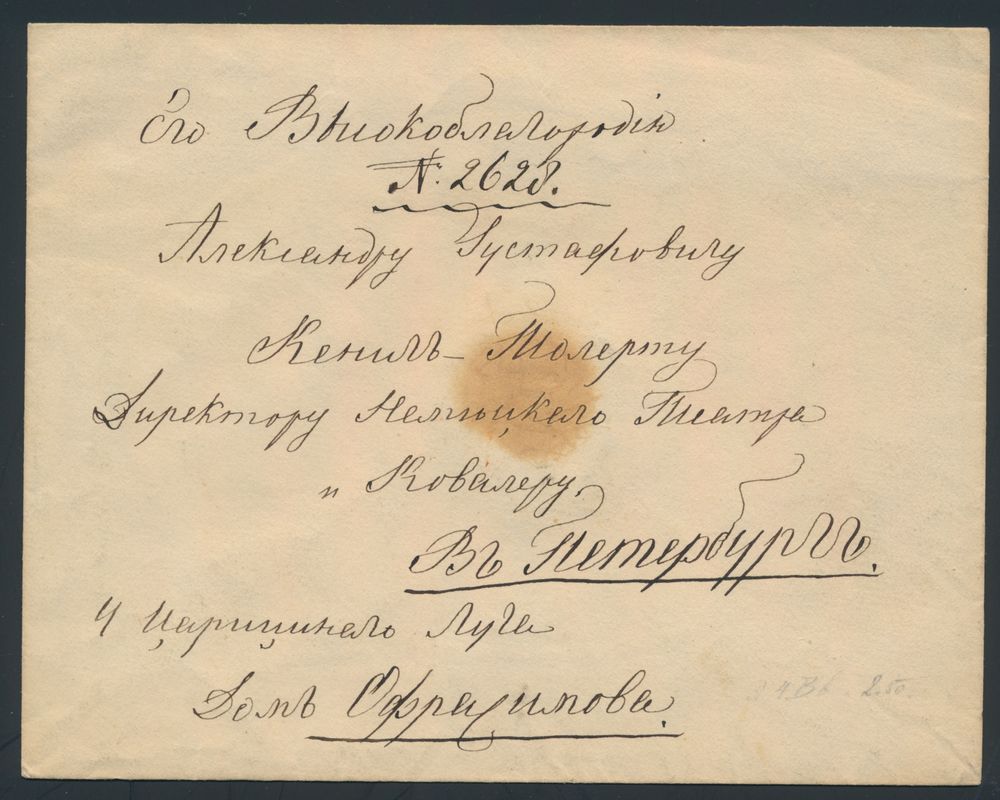 Его Высокоблагородію
№ 2628.
Александру Густафовичу
Кенигъ-Толерту
Директору Немецкаго Театра
и Ковалеру,
Въ Петербургъ.
У Царицинаго Луга
Домъ Офрасимова.